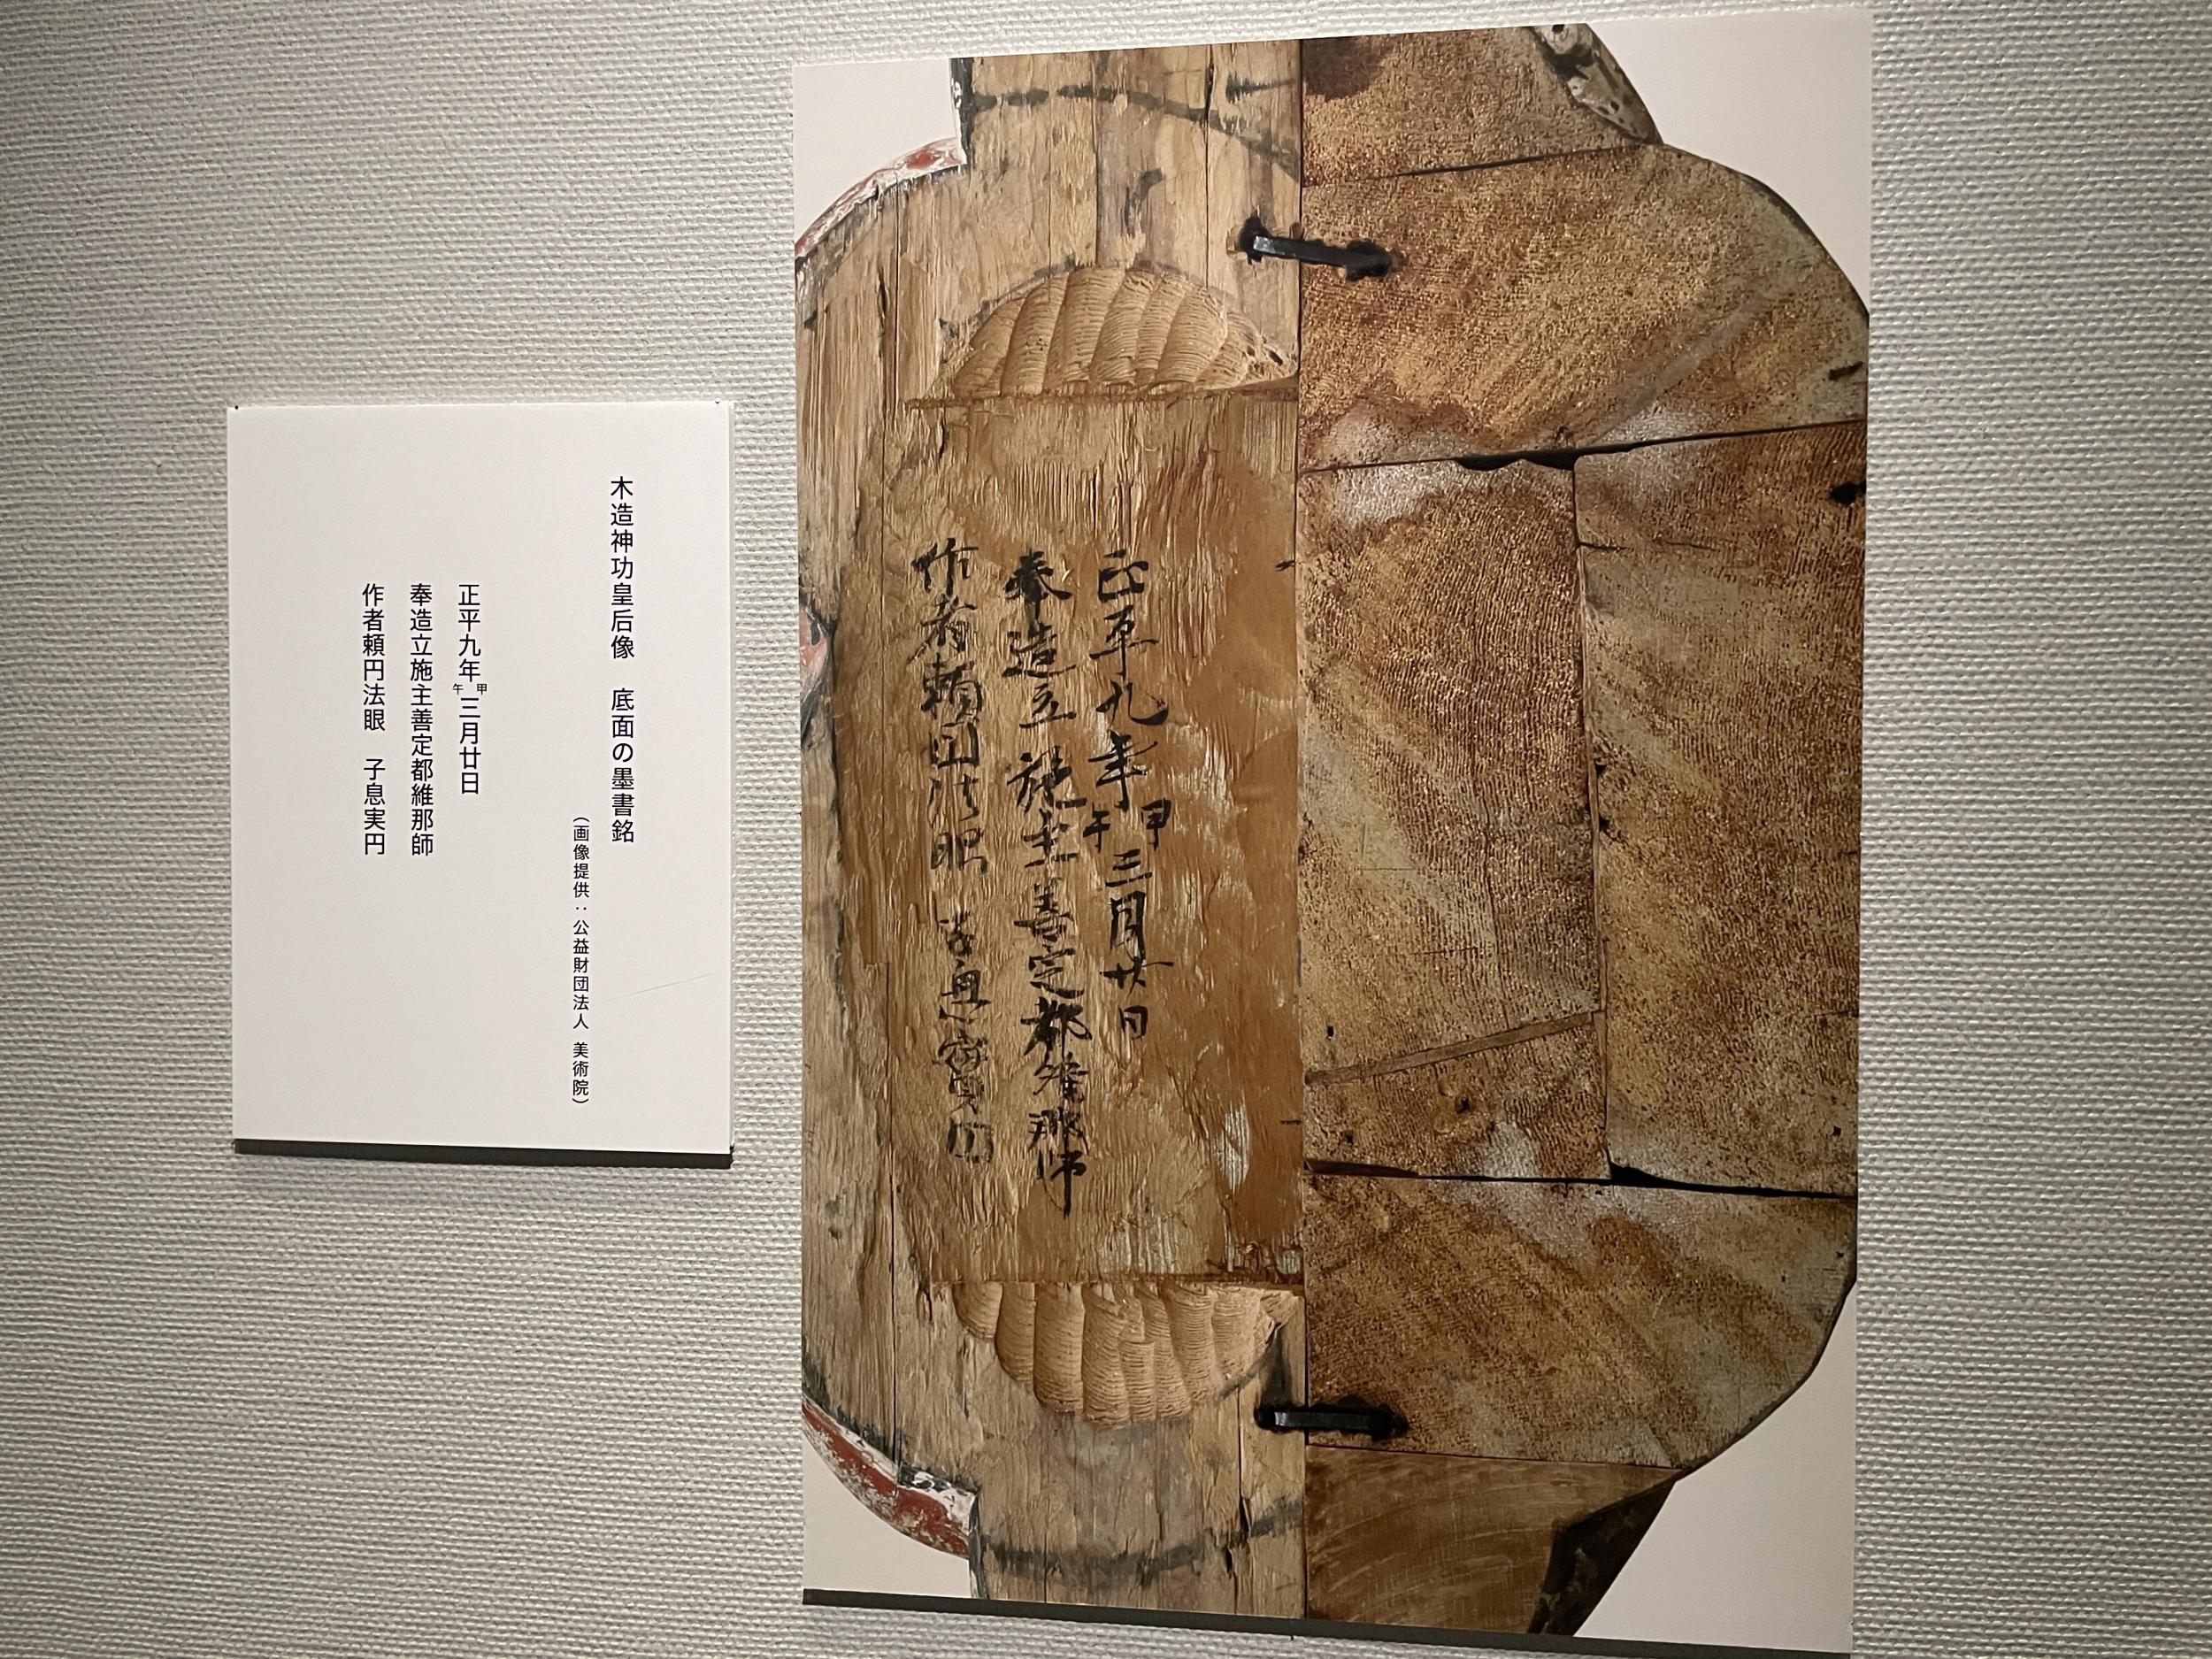 正平九年甲午三月廿日
奉造立施主善定都維那師
作者頼円法眼 子息實円
木造神功皇后像 底面の墨書銘
(画像提供:公益財団法人 美術院)
正平九年甲午三月廿日
奉造立施主善定都維那師
作者頼円法眼 子息実円